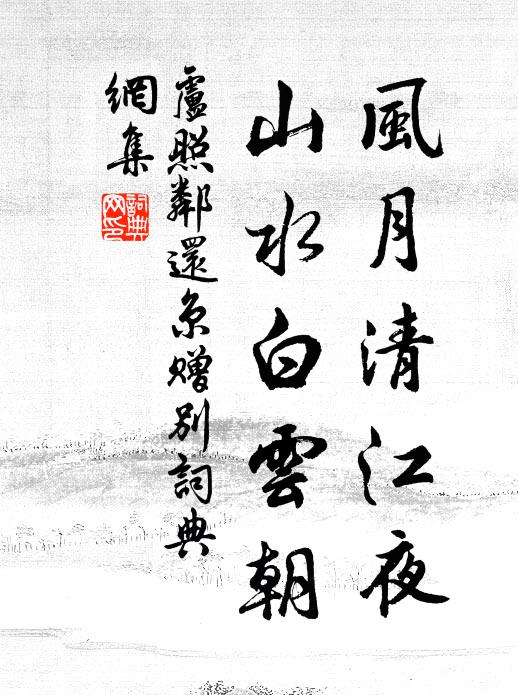 風月清江夜
山水白雲朝
盧照鄰還京贈別詞典
網集
詞典
网印